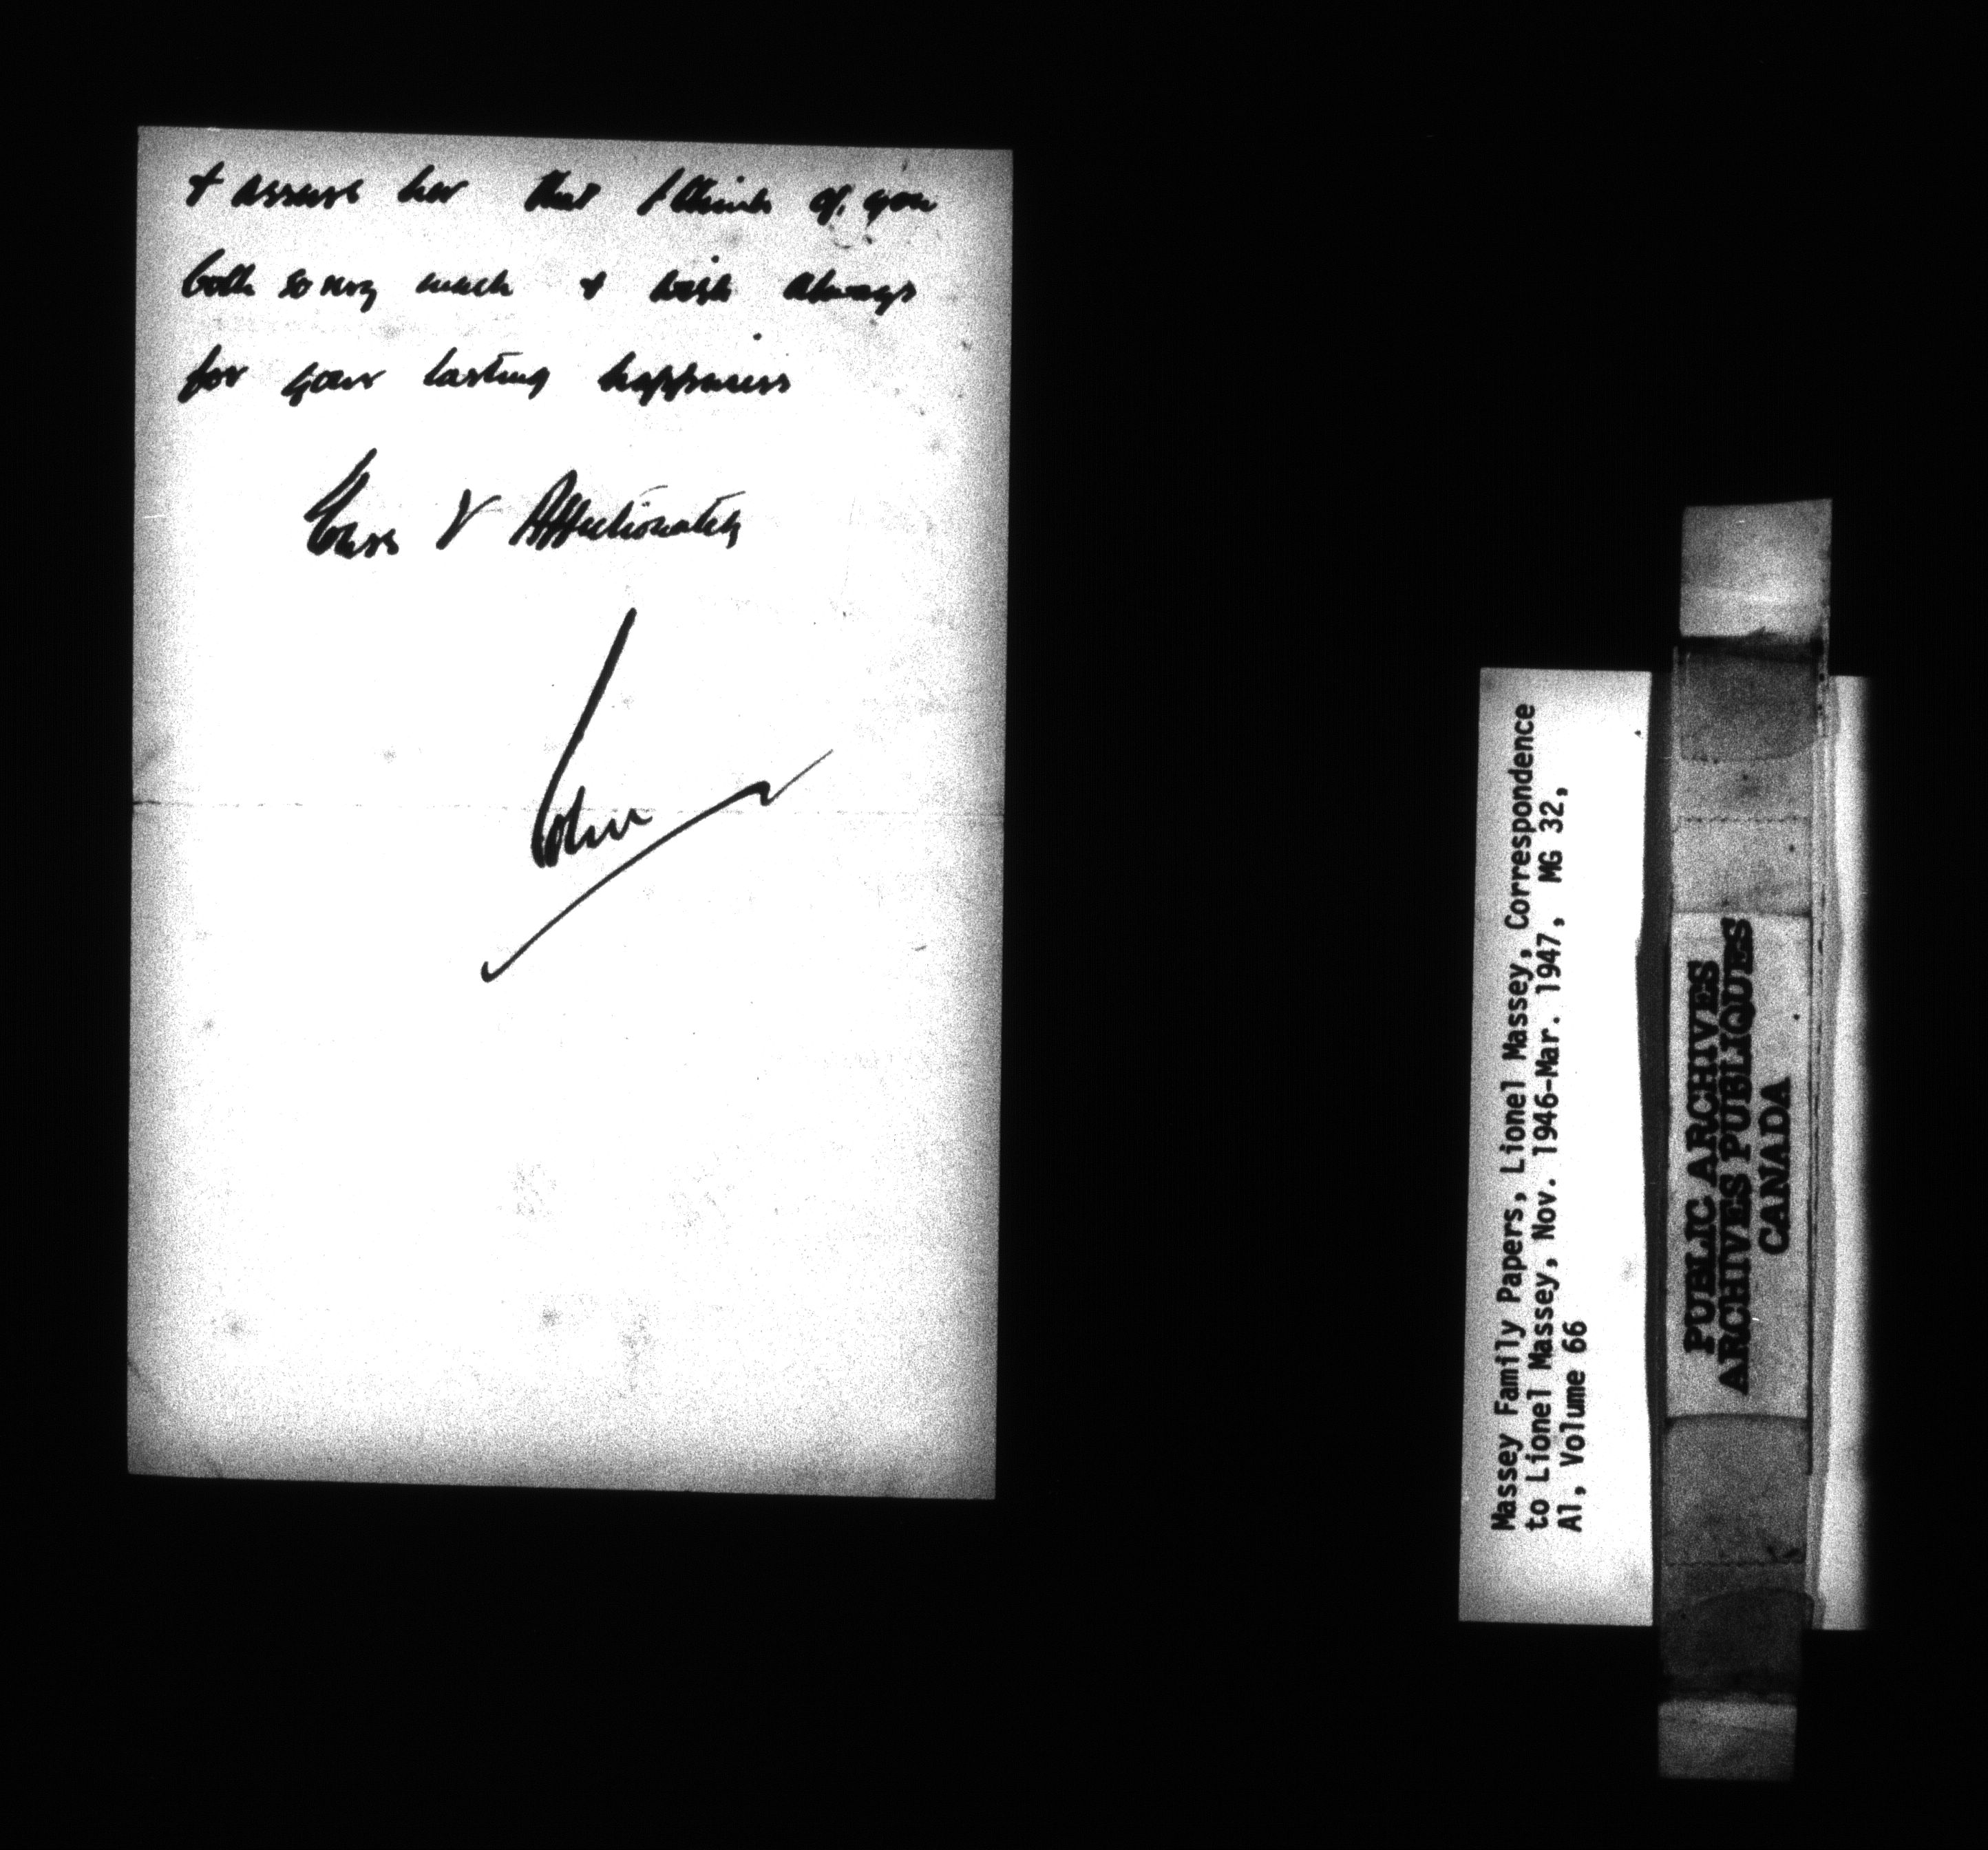 & assure her that I think of you
both so very much & wish always
for your lasting happiness
Yours V Affectionately
Massey Family Papers, Lionel Massey, Correspondence
to Lionel Massey, Nov. 1946-Mar. 1947, MG 32,
A1, Volume 66
PUBLIC ARCHIVES
ARCHIVES PUBLIQUES
CANADA